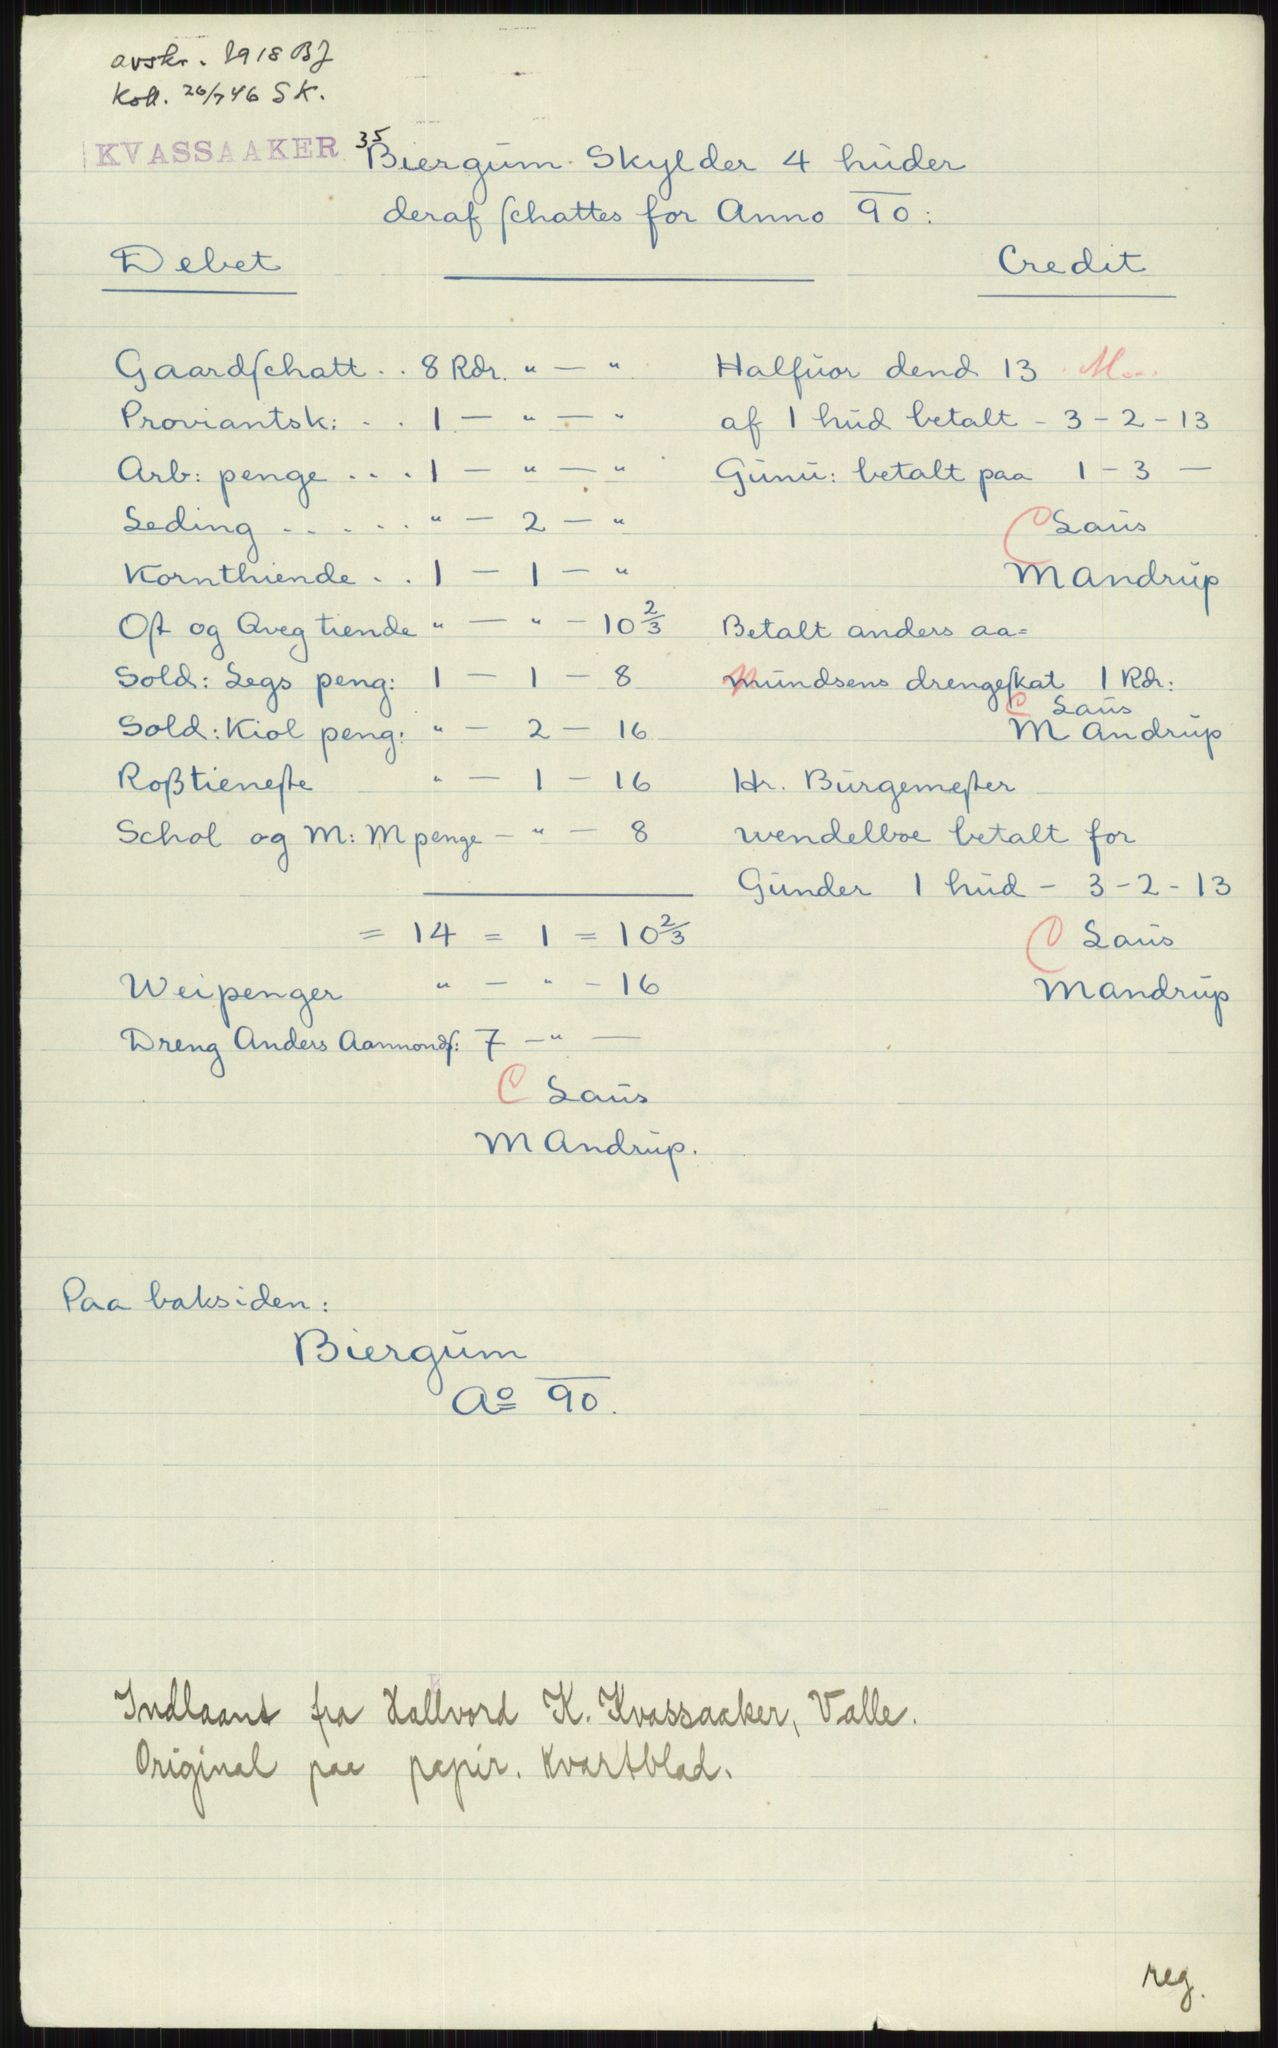 avskr. 1918 BJ
Koll. 26/7 46 SK.
KVASSAAKER
35
Biergüm Skylder 4 hüder
deraf schattes for Anno 90:
Debet
Credit
Gaardschatt .. 8 Rdr. " — "
Proviantsk: . . 1 — " — "
Arb: penge . . . 1 — " — "
Leding . . . . . " — 2 — "
Kornthiende . . 1 — 1 — "
Ost og Qveg tiende " — " — 10 2/3
Sold: Legs peng: 1 — 1 — 8
Sold: Kiol peng: " — 2 — 16
Roßtieneste " — 1 — 16
Schol og M: M penge — " — 8
= 14 = 1 = 10 2/3
Weipenger " — " — 16
Dreng Anders Aamonds: 7 — " —
C Laüs
MAndrüp.
Halfüor dend 13 M...
af 1 hüd betalt - 3 - 2 - 13
Günü: betalt paa 1 - 3 —
C Laüs
MAndrüp
Betalt anders aa=
mündsens drengeskat 1 Rdr:
C Laüs
MAndrüp
Hr. Bürgemester
wendelboe betalt for
Günder 1 hüd - 3 - 2 - 13
C Laüs
MAndrüp
Paa baksiden:
Biergüm
Ao 90.
Indlaant fra Hallvord K. Kvassaaker, Valle.
Original paa papir. Kvartblad.
reg.